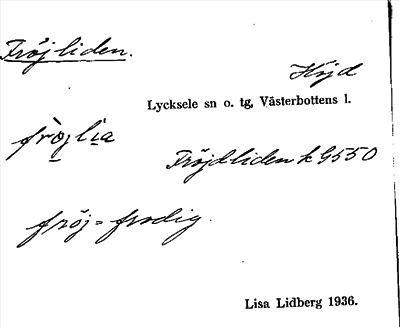 Fröjliden.
Höjd
Lycksele sn o. tg, Västerbottens l.
fröjlia
Fröjdliden k G550
fröj = frodig.
Lisa Lidberg 1936.